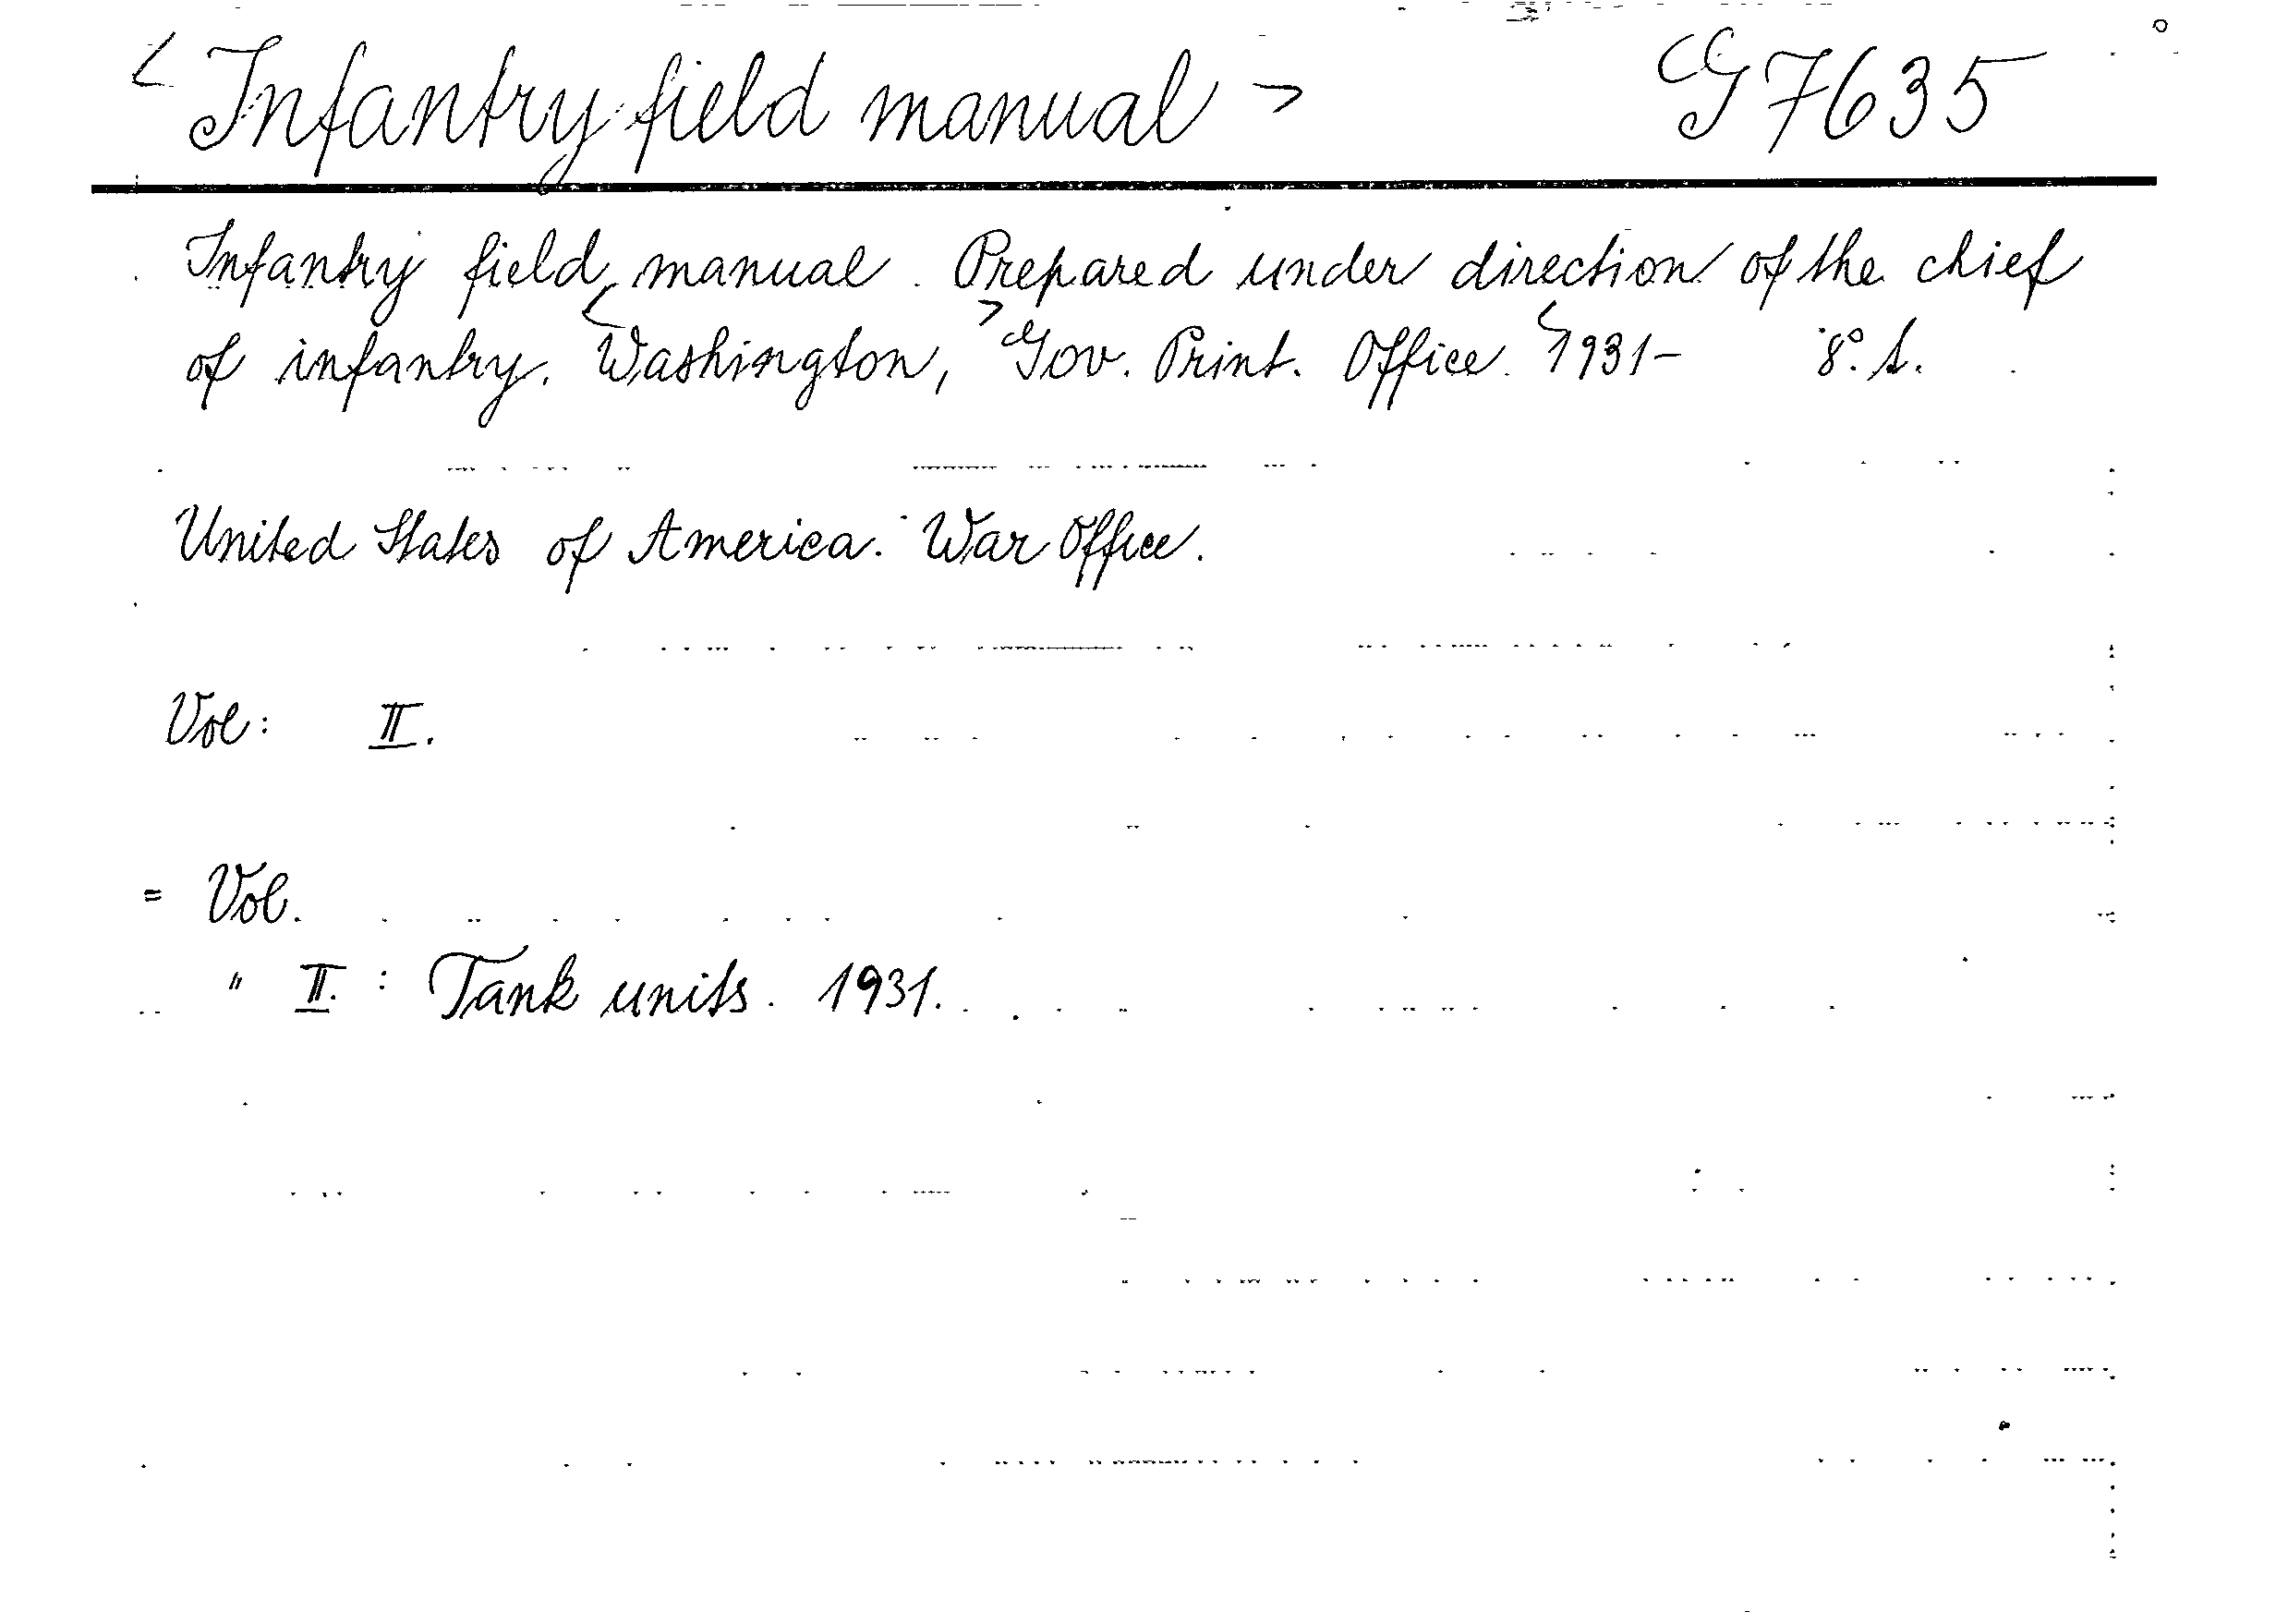 < Infantry field manual > G 7635
Infantry field manual. Prepared under direction of the chief
of infantry. < Washington, > Gov. Print. Office. < 1931- 8°. s.
United States of America. War Office.
Vol: II.
= Vol.
" II. : Tank units. 1931.